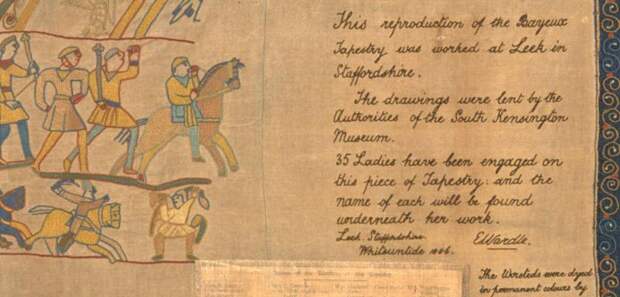 This reproduction of the Bayeux
Tapestry was worked at Leek in
Staffordshire.
The drawings were lent by the
Authorities of the South Kensington
Museum.
35 Ladies have been engaged on
this piece of Tapestry: and the
name of each will be found
underneath her work.
Leek. Staffordshire. EWardle.
Whitsuntide
The Worsteds were dyed
in permanent colours by